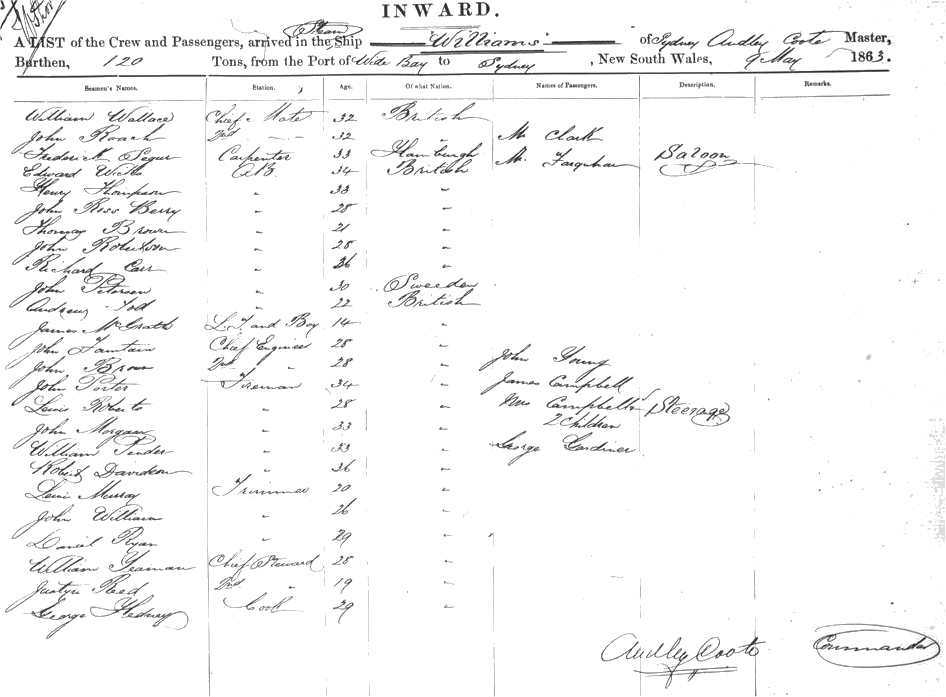 INWARD.
A LIST of the Crew and Passengers, arrived in the Steam Ship "Williams" of Sydney Audley Coote Master,
Burthen, 120 Tons, from the Port of Wide Bay to Sydney, New South Wales, 9 May 1863.
Seamen's Names. Station. Age. Of what Nation. Names of Passengers. Description. Remarks.
William Wallace Chief Mate 32 British
John Roach 2nd " 32 Mr Clark
Frederick Segur Carpenter 33 Hamburgh Mr Farquhar Saloon
Edward AB 34 British
Henry Thompson " 33 "
John Ross Berry " 28 "
Thomas Brown " 21 "
John Robertson " 28 "
Richard Carr " 26 "
John Peterson " 30 Sweeden
Andrew Tod " 22 British
James McGrath L.T. and Boy 14 "
John Fantain Chief Engineer 28 "
John Brown 2nd " 28 " John Young
John Porter Fireman 34 " James Campbell
Lewis Roberts " 28 " Mrs Campbell & Steerage
John Morgan " 33 " 2 Children
William Pender " 33 " George Gardiner
Robert Davidson " 36 "
Levi Murray Trimmer 20 "
John William " 26 "
Daniel Ryan " 29 "
William Yeaman Chief Steward 28 "
Justyn Reed 2nd " 19 "
George Hedney Cook 29 "
Audley Coote Commander